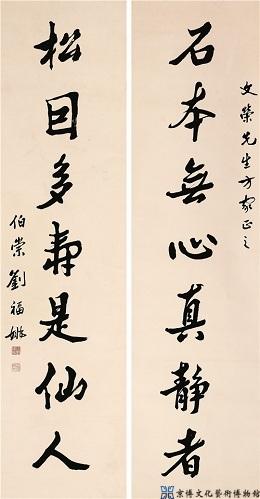 文榮先生方家正之
石本無心真靜者
松因多壽是仙人
伯崇劉福姚
京博文化藝術博物館